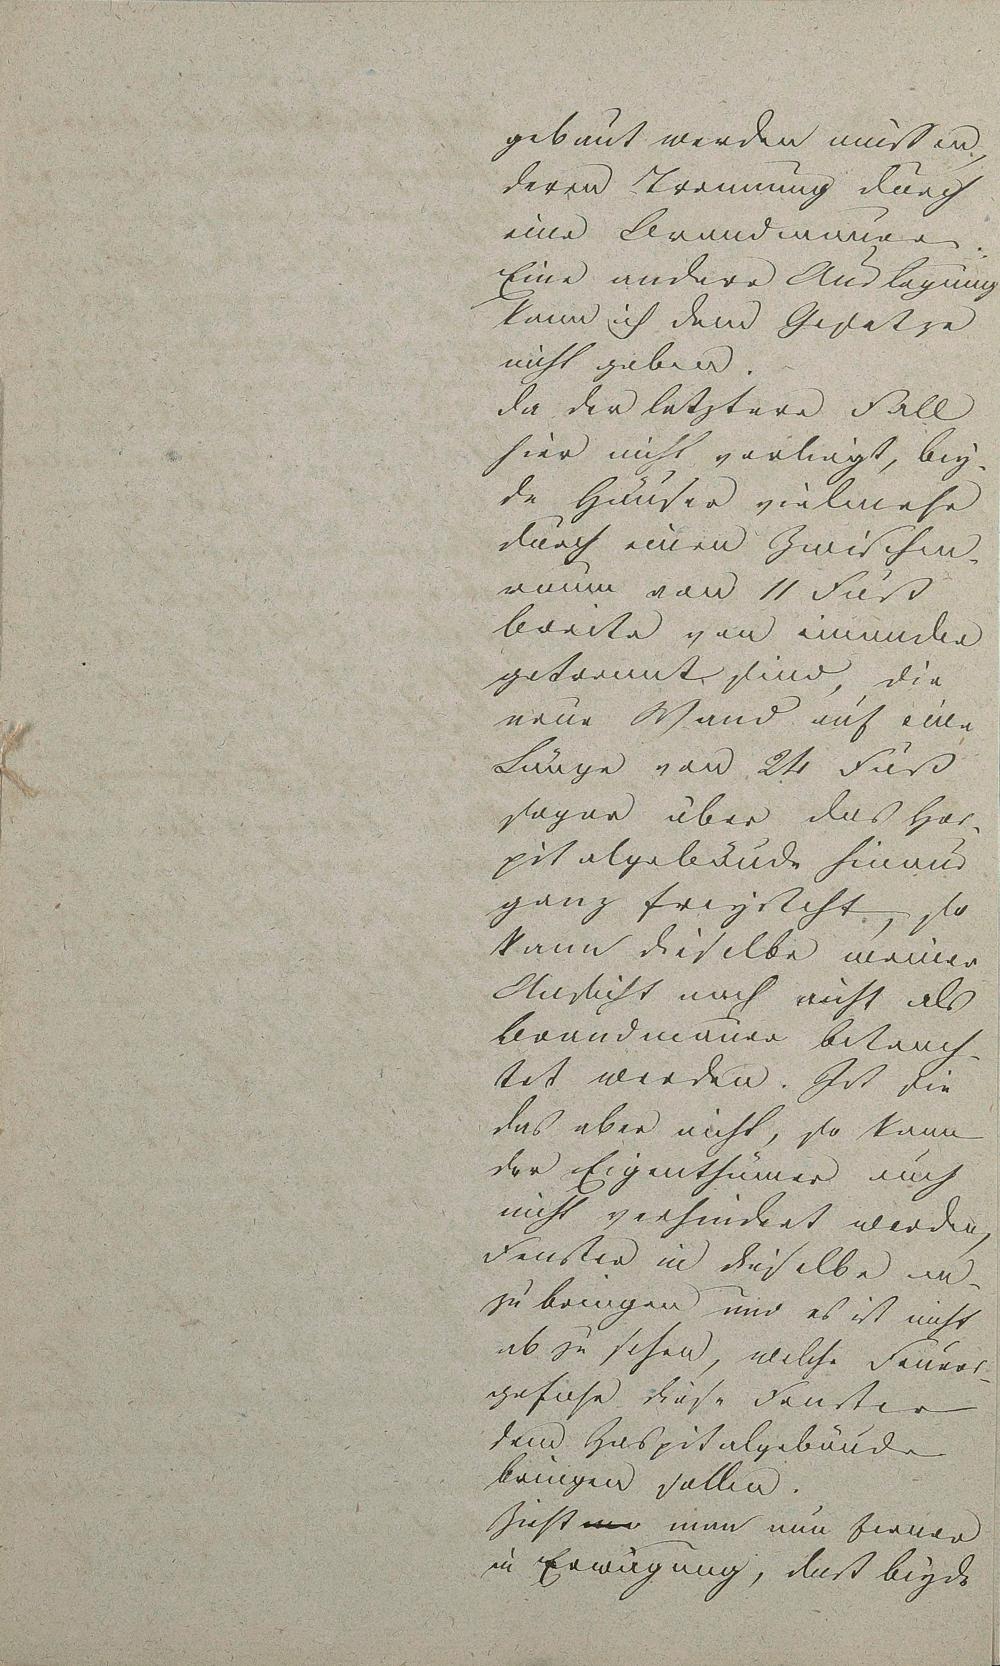 gebaut werden müssen,
deren Trennung durch
eine Brandmauer.
Eine andere Auslegung
kann ich dem Gesetze
nicht geben.
Da der letztere Fall
hier nicht vorliegt, bey-
de Häuser vielmehr
durch einen Zwischen-
raum von 11 Fuß
Breite von einander
getrennt sind, die
neue Wand auf eine
Länge von 24 Fuß
sogar über das Hos-
pitalgebäude hinaus
ganz freysteht, so
kann dieselbe meiner
Ansicht nach nicht als
Brandmauer betrach-
tet werden. Ist sie
das aber nicht, so kann
der Eigenthümer auch
nicht verhindert werden,
Fenster in dieselbe an-
zubringen und es ist nicht
ab zu sehen, welche Feuers-
gefahr diese Fenster
dem Hospitalgebäude
bringen sollen.
Zieht man nun ferner
in Erwägung, dast beyde